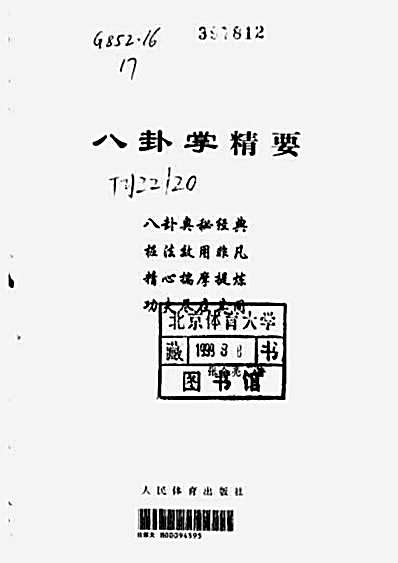 G852·16
17
八卦掌精要
八卦奥秘经典
桩法效用非凡
精心揣摩提炼
功夫尽在其间
北京体育大学
藏 1999 3 8 书
图书馆
人民体育出版社